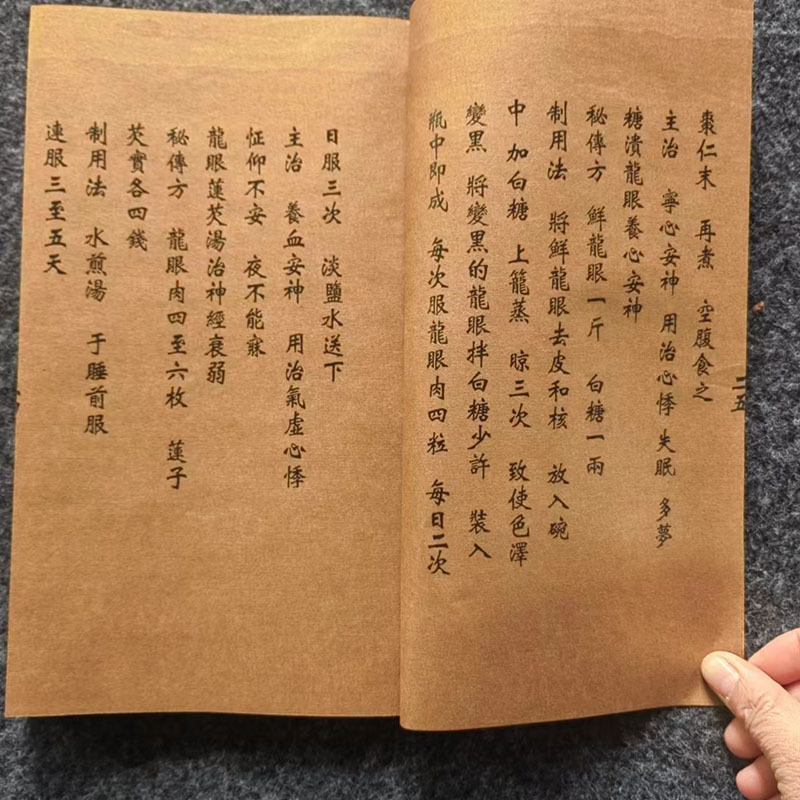 棗仁末　再煮　空腹食之
主治　寧心安神　用治心悸　失眠　多夢
糖漬龍眼養心安神
秘傳方　鮮龍眼一斤　白糖一兩
制用法　將鮮龍眼去皮和核　放入碗
中　加白糖　上籠蒸　晾三次　致使色澤
變黑　將變黑的龍眼拌白糖少許　裝入
瓶中即成　每次服龍眼肉四粒　每日二次
二五
日服三次　淡鹽水送下
主治　養血安神　用治氣虛心悸
怔仰不安　夜不能寐
龍眼蓮芡湯治神經衰弱
秘傳方　龍眼肉四至六枚　蓮子
芡實各四錢
制用法　水煎湯　于睡前服
連服三至五天